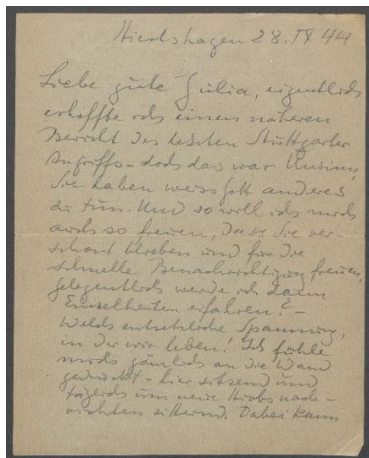 Hiertshagen 28. IX 44
Liebe gute Julia, eigentlich
erhoffte ich einen näheren
Bericht des letzten Stuttgarter
Angriffs - doch das war Unsinn,
Sie haben weiss Gott anderes
zu tun. Und so will ich mich
auch so freuen, dass Sie ver-
schont blieben und für die
schnelle Benachrichtigung freuen,
gelegentlich werde ich dann
Einzelheiten erfahren? -
Welch entsetzliche Spannung,
in der wir leben! Ich fühle
mich gänzlich an die Wand
gedrückt - hier sitzend und
täglich um neue Hiobsnach-
richten zitternd. Dabei kann